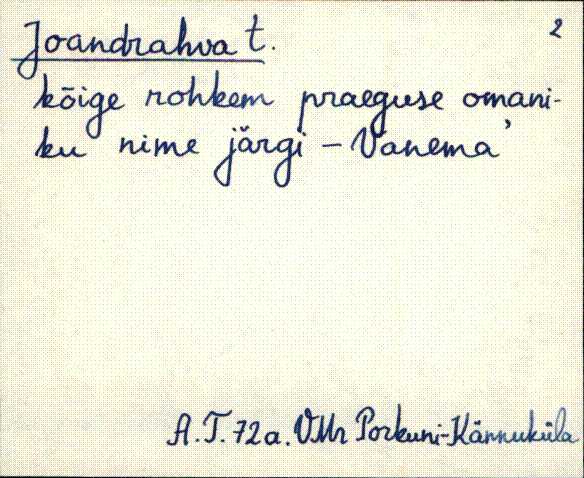 2
Joandrahva t.
kõige rohkem praeguse omani-
ku nime järgi – Vanema'
A.T. 72a. VMr Porkuni-Kännuküla